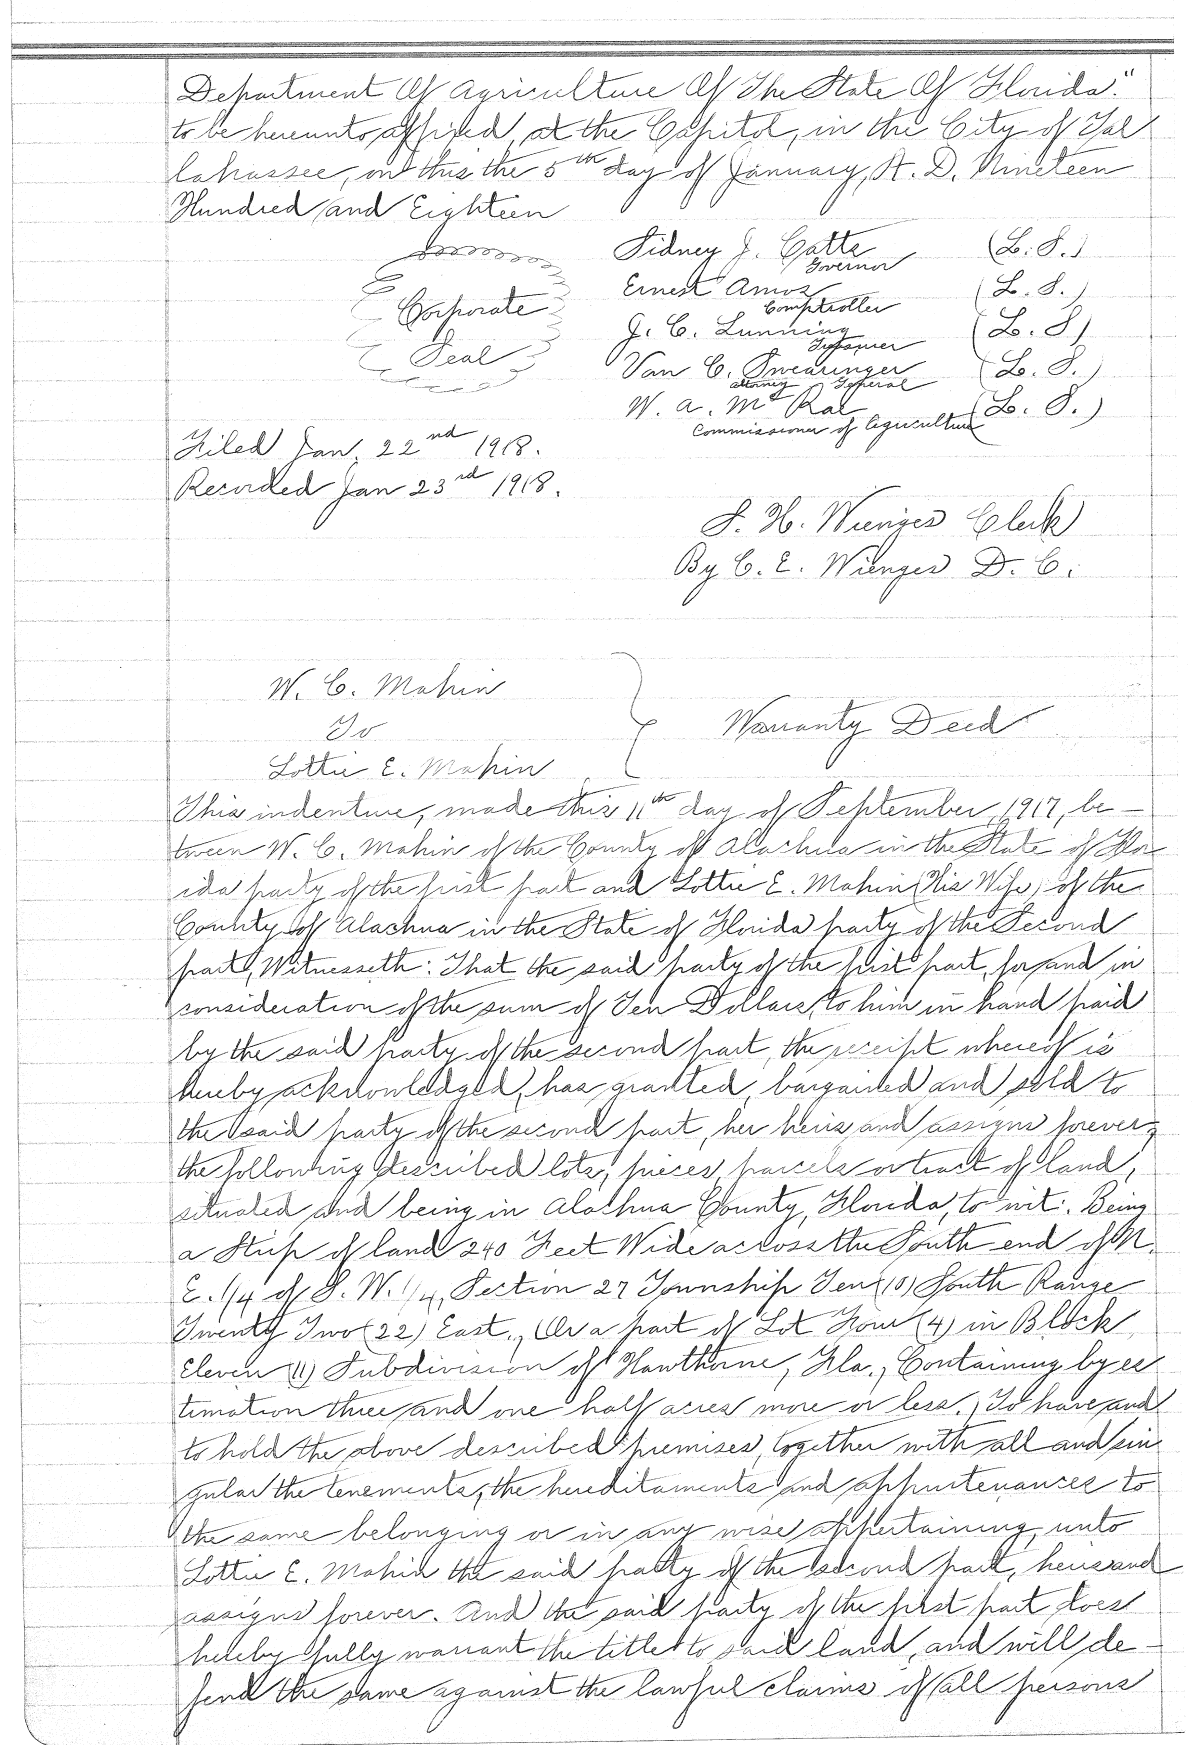 Department Of Agriculture Of The State Of Florida."
to be hereunto affixed, at the Capitol, in the City of Tal
lahassee, on this the 5th day of January, A. D. Nineteen
Hundred and Eighteen
Sidney J. Catts (L. S.)
Governor
Ernest Amos (L. S.)
Comptroller
Corporate
J. C. Lunning (L. S)
Treasurer
Seal
Van C. Swearinger (L. S.)
Attorney General
W. A. Mc Rae (L. S.)
Commissioner of Agriculture
Filed Jan. 22nd 1918.
Recorded Jan 23rd 1918.
S. H. Wienges Clerk
By C. E. Wienges D. C.
W. C. Mahin
To
Warranty Deed
Lottie E. Mahin
This indenture, made this 11th day of September, 1917, be-
tween W. C. Mahin of the County of Alachua in the State of Flor
ida party of the first part and Lottie E. Mahin (His Wife) of the
County of Alachua in the State of Florida party of the Second
part, Witnesseth: That the said party of the first part, for and in
consideration of the sum of Ten Dollars, to him in hand paid
by the said party of the second part, the receipt whereof is
hereby acknowledged, has granted, bargained and sold to
the said party of the second part, her heirs and assigns forever,
the following described lots, pieces, parcels or tract of land,
situated and being in Alachua County, Florida, to wit: Being
a Strip of land 240 Feet Wide across the South end of N.
E. 1/4 of S. W. 1/4, Section 27 Township Ten (10) South Range
Twenty Two (22) East., Or a part of Lot Four (4) in Block
Eleven (11) Subdivision of Hawthorne, Fla., Containing by es
timation three and one half acres more or less. To have and
to hold the above described premises, together with all and sin
gular the tenements, the hereditaments and appurtenances to
the same belonging or in any wise appertaining, unto
Lottie E. Mahin the said party of the second part, heirs and
assigns forever. And the said party of the first part does
hereby fully warrant the title to said land, and will de-
fend the same against the lawful claims of all persons